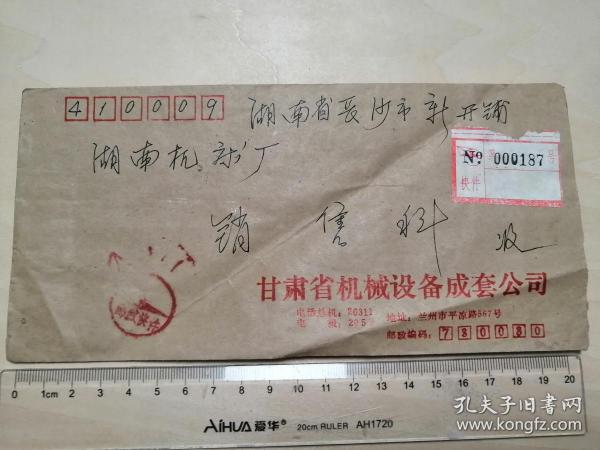 410009
湖南省长沙市新开铺
湖南机
厂
No 000187 号
快件
销售科 收
邮政快件
甘肃省机械设备成套公司
电话总机：26311
地址：兰州市平凉路567号
邮政编码：730030
0 1cm 2 3 4 5 6 7 8 9 10 11 12 13 14 15 16 17 18 19 20
AIHUA 爱华® 20cm RULER AH1720
孔夫子旧书网
www.kongfz.com